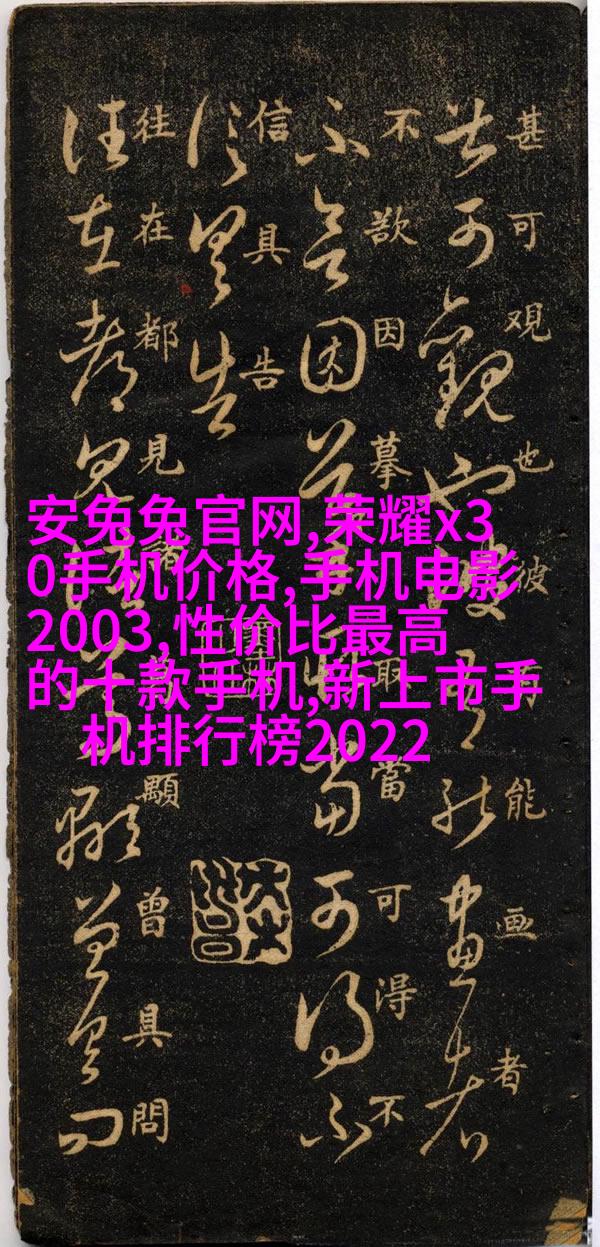 安兔兔官网,荣耀x3
0手机价格,手机电影
2003,性价比最高
的十款手机,新上市手
机排行榜2022
甚可观也彼有能画者
不欲因摹取當可得不
信具告
往在都見諸葛顯曾具問